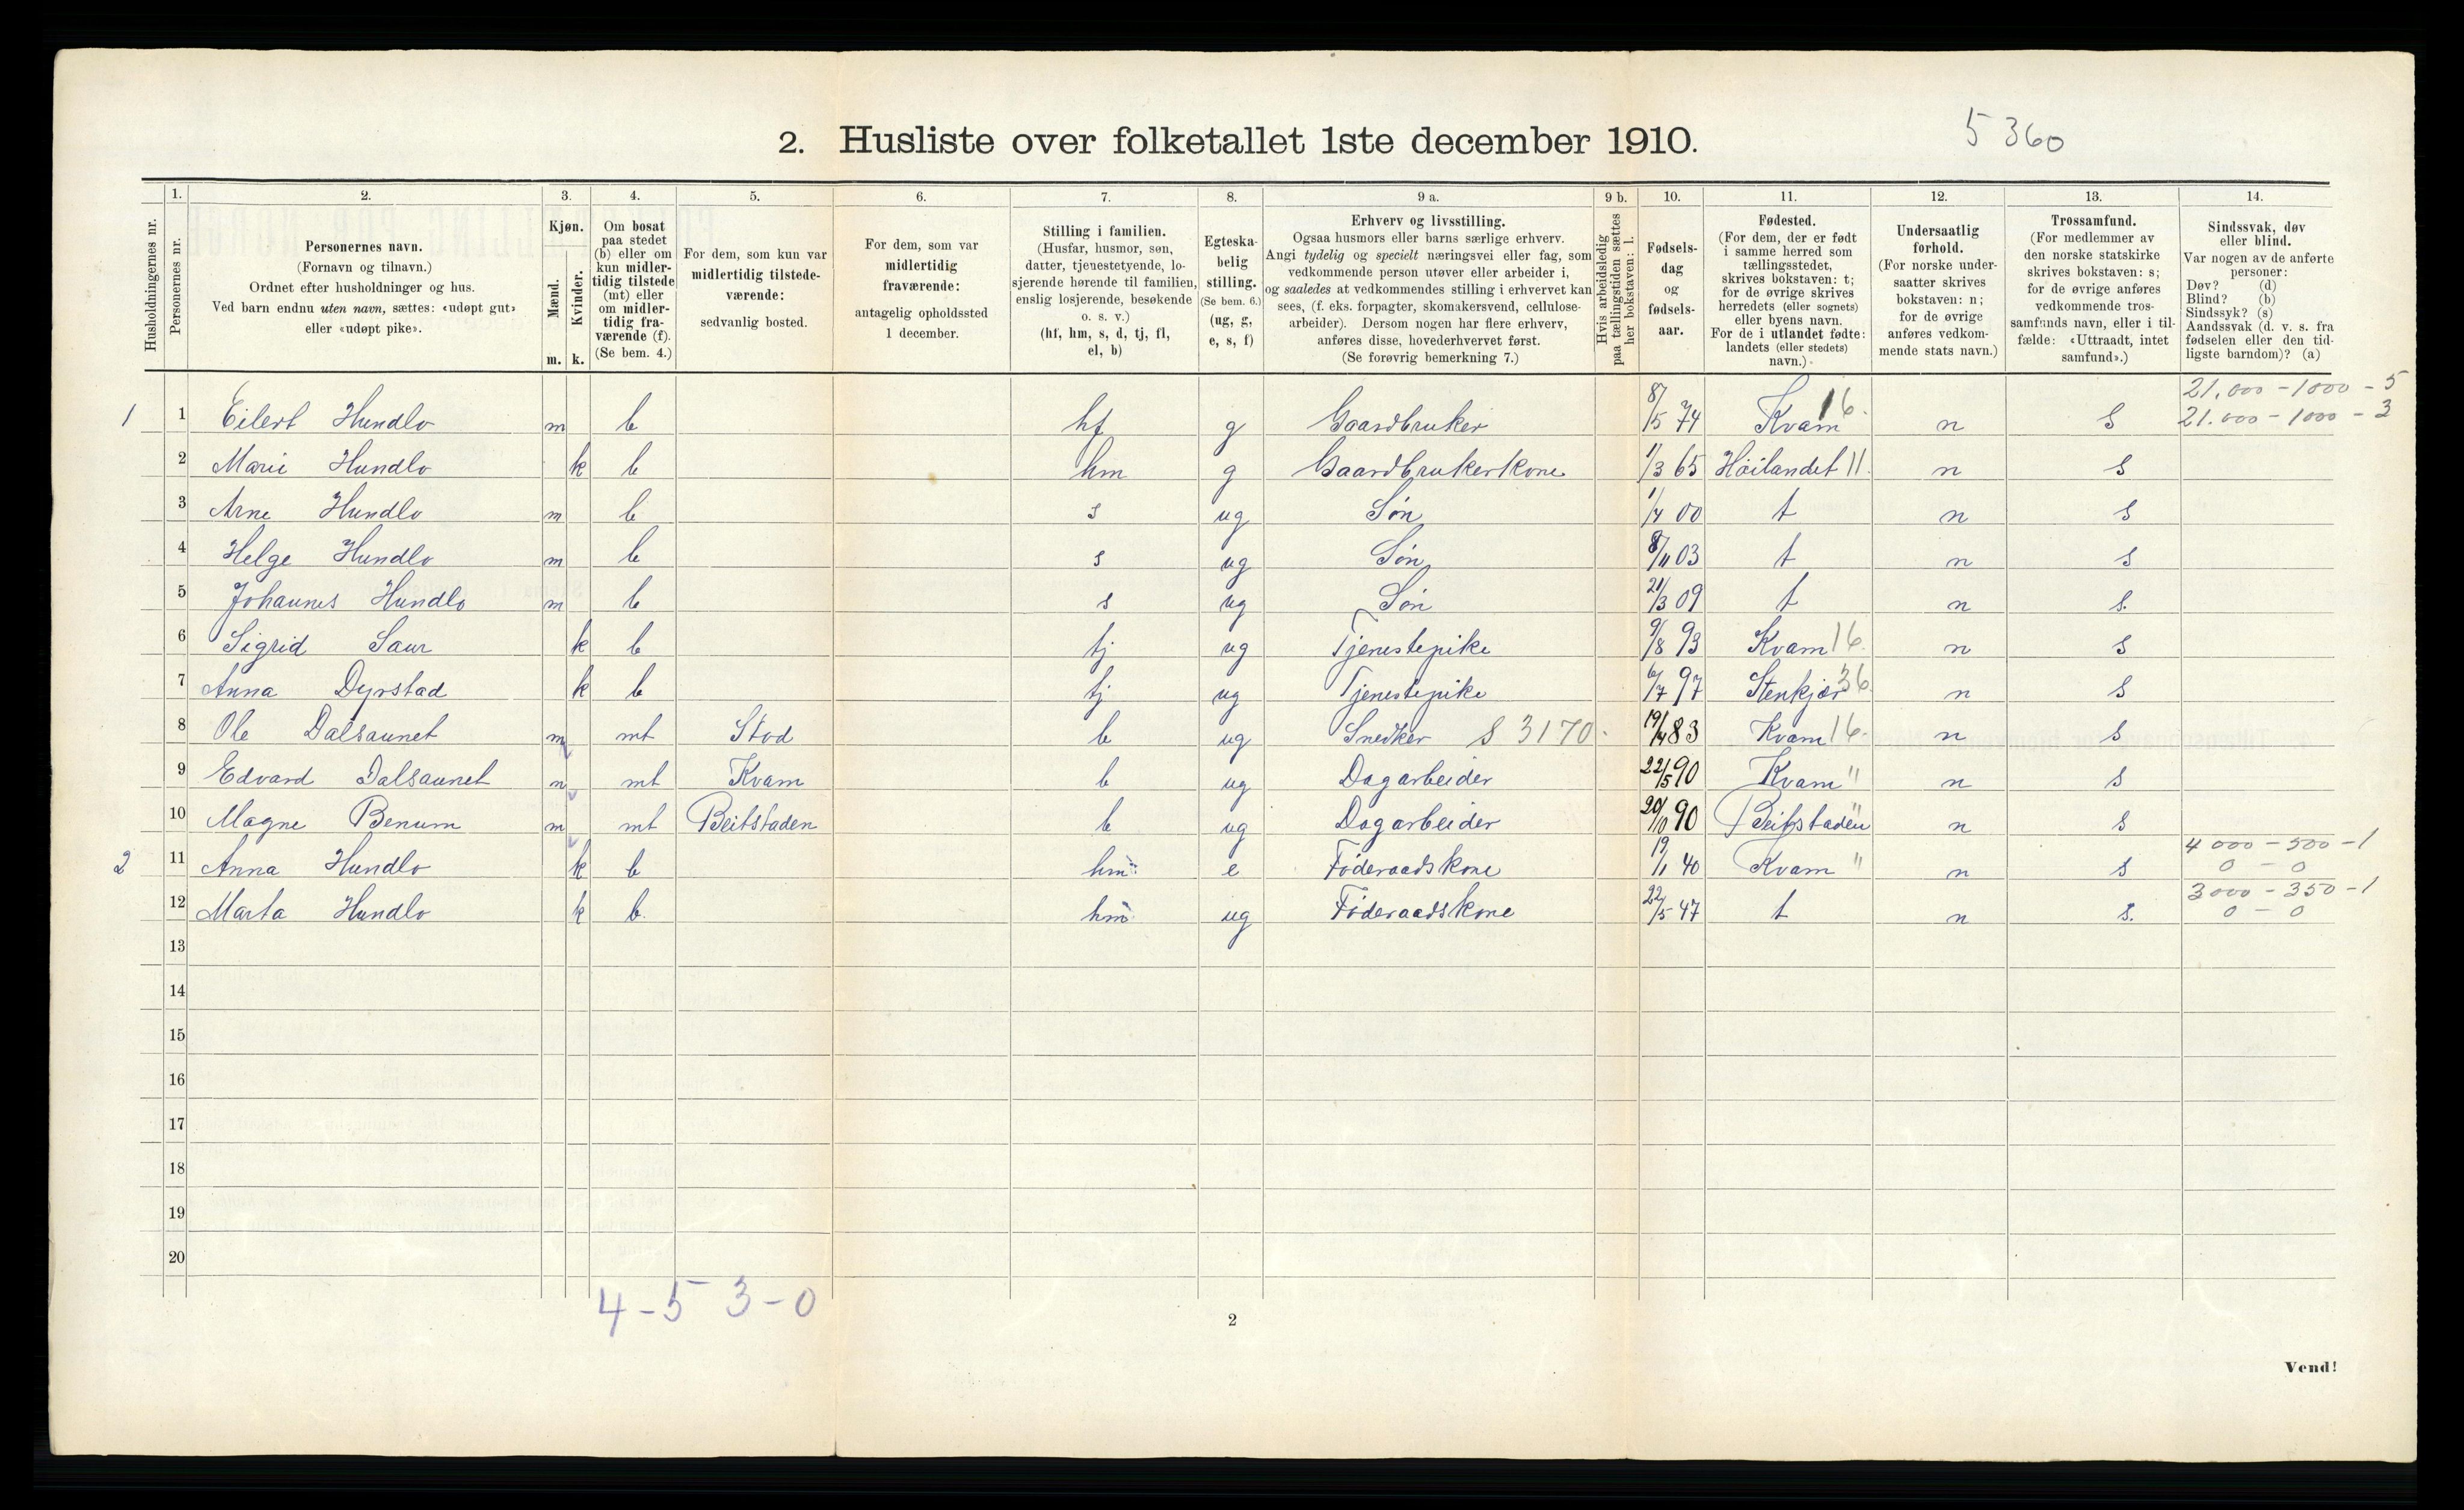 5 360
2. Husliste over folketallet 1ste december 1910.
Husholdningernes nr.
1. Personernes nr.
2. Personernes navn.
(Fornavn og tilnavn.)
Ordnet efter husholdninger og hus.
Ved barn endnu uten navn, sættes: «udøpt gut»
eller «udøpt pike».
3. Kjøn.
Mænd. m.
Kvinder. k.
4. Om bosat
paa stedet
(b) eller om
kun midler-
tidig tilstede
(mt) eller
om midler-
tidig fra-
værende (f).
(Se bem. 4.)
5. For dem, som kun var
midlertidig tilstede-
værende:
sedvanlig bosted.
6. For dem, som var
midlertidig
fraværende:
antagelig opholdssted
1 december.
7. Stilling i familien.
(Husfar, husmor, søn,
datter, tjenestetyende, lo-
sjerende hørende til familien,
enslig losjerende, besøkende
o. s. v.)
(hf, hm, s, d, tj, fl,
el, b)
8. Egteska-
belig
stilling.
(Se bem. 6.)
(ug, g,
e, s, f)
9 a. Erhverv og livsstilling.
Ogsaa husmors eller barns særlige erhverv.
Angi tydelig og specielt næringsvei eller fag, som
vedkommende person utøver eller arbeider i,
og saaledes at vedkommendes stilling i erhvervet kan
sees, (f. eks. forpagter, skomakersvend, cellulose-
arbeider). Dersom nogen har flere erhverv,
anføres disse, hovederhvervet først.
(Se forøvrig bemerkning 7.)
9 b. Hvis arbeidsledig
paa tællingstiden sættes
her bokstaven: l.
10. Fødsels-
dag
og
fødsels-
aar.
11. Fødested.
(For dem, der er født
i samme herred som
tællingsstedet,
skrives bokstaven: t;
for de øvrige skrives
herredets (eller sognets)
eller byens navn.
For de i utlandet fødte:
landets (eller stedets)
navn.)
12. Undersaatlig
forhold.
(For norske under-
saatter skrives
bokstaven: n;
for de øvrige
anføres vedkom-
mende stats navn.)
13. Trossamfund.
(For medlemmer av
den norske statskirke
skrives bokstaven: s;
for de øvrige anføres
vedkommende tros-
samfunds navn, eller i til-
fælde: «Uttraadt, intet
samfund».)
14. Sindssvak, døv
eller blind.
Var nogen av de anførte
personer:
Døv? (d)
Blind? (b)
Sindssyk? (s)
Aandssvak (d. v. s. fra
fødselen eller den tid-
ligste barndom)? (a)
21.000 - 1000 - 5
1 1 Eilert Hundlo m b hf g Gaardbruker 8/5 74 Kvam 16. n S 21.000 - 1000 - 3
2 Marie Hundlo k b hm g Gaardbrukerkone 1/3 65 Høilandet 11. n s
3 Arne Hundlo m b s ug Søn 1/4 00 t n s
4 Helge Hundlo m b s ug Søn 8/11 03 t n s
5 Johannes Hundlo m b s ug Søn 21/3 09 t n s.
6 Sigrid Saur k b tj ug Tjenestepike 9/8 93 Kvam 16. n s
7 Anna Dyrstad k b tj ug Tjenestepike 6/7 97 Stenkjær 36. n s
8 Ole Dalsaunet m mt Stod b ug Snedker S 3170 19/4 83 Kvam 16. n s
9 Edvard Dalsaunet m mt Kvam b ug Dagarbeider 22/5 90 Kvam " n s
10 Magne Benum m mt Beitstaden b ug Dagarbeider 20/10 90 Beitstaden " n s
4000 - 500 - 1
2 11 Anna Hundlo k b hm e Føderaadskone 19/1 40 Kvam " n s 0 - 0
3000 - 350 - 1
12 Marta Hundlo k b. hm ug Føderaadskone 22/5 47 t n s. 0 - 0
13
14
15
16
17
18
19
20
4 - 5 3 - 0
2
Vend!